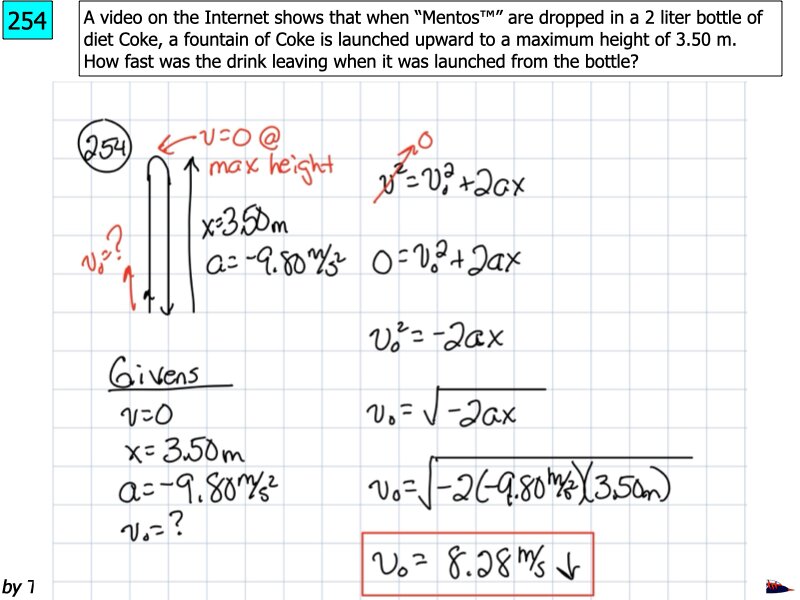 254
A video on the Internet shows that when “Mentos™” are dropped in a 2 liter bottle of
diet Coke, a fountain of Coke is launched upward to a maximum height of 3.50 m.
How fast was the drink leaving when it was launched from the bottle?
254
v=0 @
max height
x=3.50m
a=-9.80m/s²
v₀=?
Givens
v=0
x=3.50m
a=-9.80m/s²
v₀=?
0
v²=v₀²+2ax
0=v₀²+2ax
v₀²=-2ax
v₀=√-2ax
v₀=√-2(-9.80m/s²)(3.50m)
v₀= 8.28 m/s ↓
by